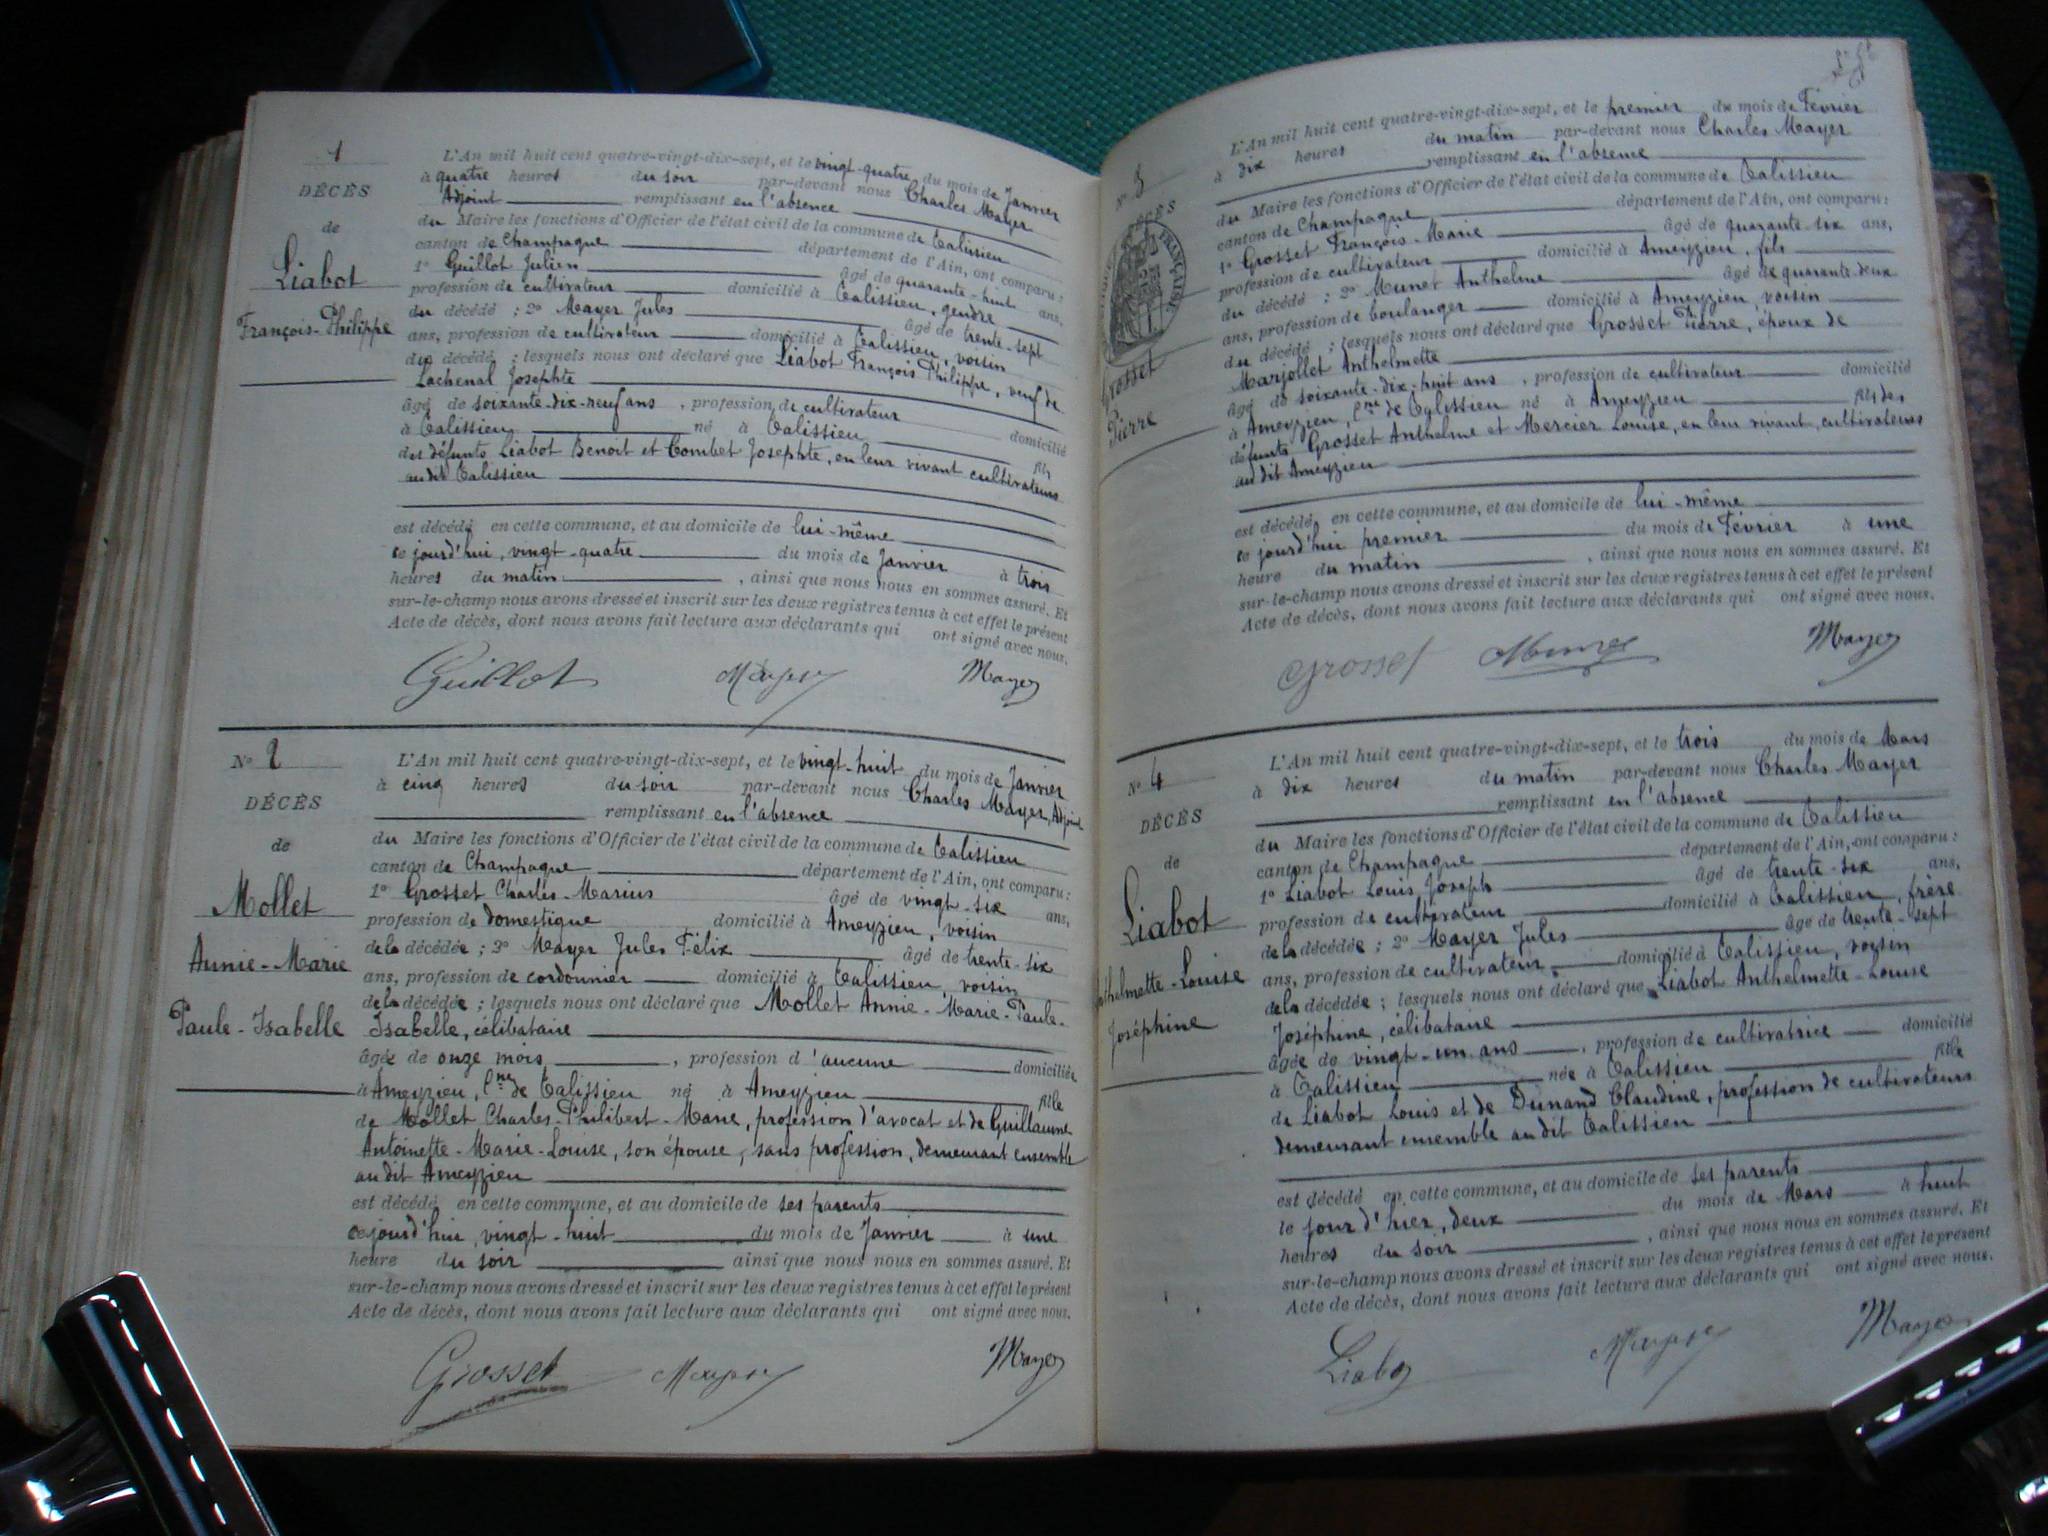 1
DÉCÈS
de
Liabot
François-Philippe
L'An mil huit cent quatre-vingt-dix-sept, et le vingt-quatre du mois de Janvier
à quatre heures du soir par-devant nous Charles Mayer
Adjoint remplissant en l'absence
du Maire les fonctions d'Officier de l'état civil de la commune de Talissieu
canton de Champagne département de l'Ain, ont comparu :
1° Guillot Julien âgé de quarante-huit ans,
profession de cultivateur domicilié à Talissieu, gendre
du décédé ; 2° Mayer Jules âgé de trente-sept
ans, profession de cultivateur domicilié à Talissieu, voisin
du décédé ; lesquels nous ont déclaré que Liabot François Philippe, veuf de
Lachenal Josephte
âgé de soixante-dix-neuf ans, profession de cultivateur domicilié
à Talissieu né à Talissieu fils
des défunts Liabot Benoit et Combet Josephte, en leur vivant cultivateurs
audit Talissieu
est décédé en cette commune, et au domicile de lui-même
ce jourd'hui, vingt-quatre du mois de Janvier à trois
heures du matin, ainsi que nous nous en sommes assuré. Et
sur-le-champ nous avons dressé et inscrit sur les deux registres tenus à cet effet le présent
Acte de décès, dont nous avons fait lecture aux déclarants qui ont signé avec nous.
Guillot Mayer Mayer
N° 2
DÉCÈS
de
Mollet
Annie-Marie
Paule-Isabelle
L'An mil huit cent quatre-vingt-dix-sept, et le vingt-huit du mois de Janvier
à cinq heures du soir par-devant nous Charles Mayer, Adjoint
remplissant en l'absence
du Maire les fonctions d'Officier de l'état civil de la commune de Talissieu
canton de Champagne département de l'Ain, ont comparu :
1° Grosset Charles-Marius âgé de vingt-six ans,
profession de domestique domicilié à Ameyzieu, voisin
de la décédée ; 2° Mayer Jules Félix âgé de trente-six
ans, profession de cordonnier domicilié à Talissieu, voisin
de la décédée ; lesquels nous ont déclaré que Mollet Annie-Marie-Paule-
Isabelle, célibataire
âgée de onze mois, profession d'aucune domiciliée
à Ameyzieu, Cne de Talissieu né à Ameyzieu fille
de Mollet Charles-Philibert-Marie, profession d'avocat et de Guillaume
Antoinette-Marie-Louise, son épouse, sans profession, demeurant ensemble
audit Ameyzieu
est décédé en cette commune, et au domicile de ses parents
ce jourd'hui, vingt-huit du mois de Janvier à une
heure du soir ainsi que nous nous en sommes assuré. Et
sur-le-champ nous avons dressé et inscrit sur les deux registres tenus à cet effet le présent
Acte de décès, dont nous avons fait lecture aux déclarants qui ont signé avec nous.
Grosset Mayer Mayer
N° 3
DÉCÈS
FRANÇAISE
Grosset
Pierre
L'An mil huit cent quatre-vingt-dix-sept, et le premier du mois de Février
à dix heures du matin par-devant nous Charles Mayer
remplissant en l'absence
du Maire les fonctions d'Officier de l'état civil de la commune de Talissieu
canton de Champagne département de l'Ain, ont comparu :
1° Grosset François-Marie âgé de quarante-six ans,
profession de cultivateur domicilié à Ameyzieu, fils
du décédé ; 2° Munet Anthelme âgé de quarante-deux
ans, profession de boulanger domicilié à Ameyzieu, voisin
du décédé ; lesquels nous ont déclaré que Grosset Pierre, époux de
Marjollet Anthelmette
âgé de soixante-dix-huit ans, profession de cultivateur domicilié
à Ameyzieu, Cne de Talissieu né à Ameyzieu fils des
défunts Grosset Anthelme et Mercier Louise, en leur vivant, cultivateurs
audit Ameyzieu
est décédé en cette commune, et au domicile de lui-même
ce jourd'hui premier du mois de Février à une
heure du matin, ainsi que nous nous en sommes assuré. Et
sur-le-champ nous avons dressé et inscrit sur les deux registres tenus à cet effet le présent
Acte de décès, dont nous avons fait lecture aux déclarants qui ont signé avec nous.
Grosset Munet Mayer
N° 4
DÉCÈS
de
Liabot
Anthelmette-Louise
Joséphine
L'An mil huit cent quatre-vingt-dix-sept, et le trois du mois de Mars
à dix heures du matin par-devant nous Charles Mayer
remplissant en l'absence
du Maire les fonctions d'Officier de l'état civil de la commune de Talissieu
canton de Champagne département de l'Ain, ont comparu :
1° Liabot Louis Joseph âgé de trente-six ans,
profession de cultivateur domicilié à Talissieu, frère
de la décédée ; 2° Mayer Jules âgé de trente-sept
ans, profession de cultivateur domicilié à Talissieu, voisin
de la décédée ; lesquels nous ont déclaré que Liabot Anthelmette-Louise
Joséphine, célibataire
âgée de vingt-un ans, profession de cultivatrice domicilié
à Talissieu née à Talissieu fille
de Liabot Louis et de Dunand Claudine, profession de cultivateurs
demeurant ensemble audit Talissieu
est décédé en cette commune, et au domicile de ses parents
le jour d'hier, deux du mois de Mars à huit
heures du soir, ainsi que nous nous en sommes assuré. Et
sur-le-champ nous avons dressé et inscrit sur les deux registres tenus à cet effet le présent
Acte de décès, dont nous avons fait lecture aux déclarants qui ont signé avec nous.
Liabot Mayer Mayer